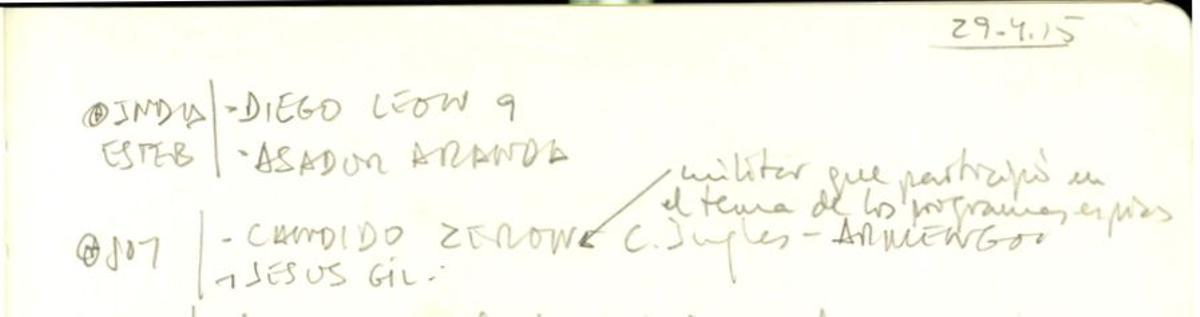 29-4.15
INDA -DIEGO LEON 9
ESTEB -ASADOR ARANDA
militar que participó en
el tema de los programas espías
- CANDIDO ZERON C. Ingles - ARMENGOL
- JESUS GIL.